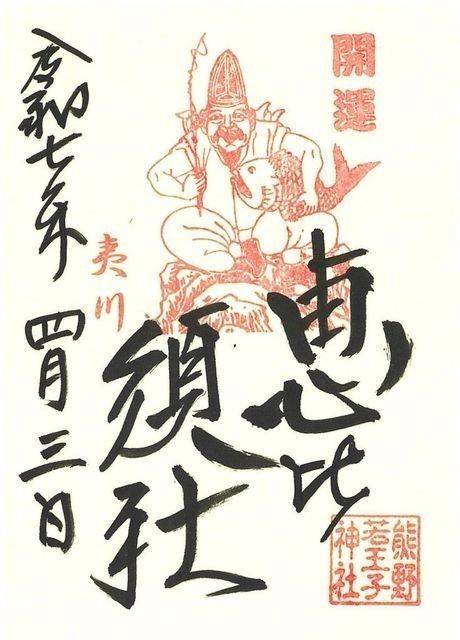 開運
恵比
須社
夷川
令和七年 四月三日
熊野
若王子
神社